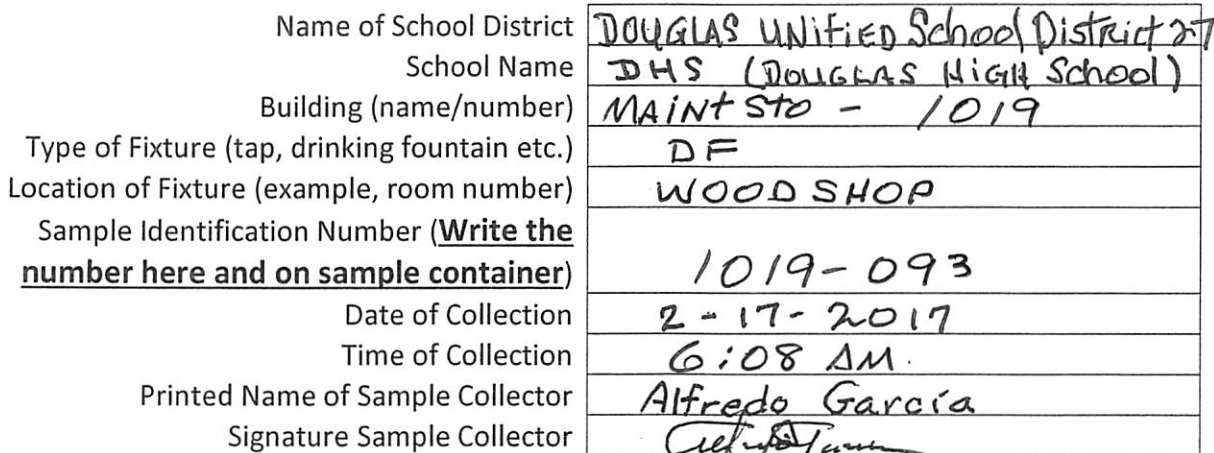 Name of School District DOUGLAS UNiFiED School District 27
School Name DHS (DOUGLAS HiGH School)
Building (name/number) MAiNt Sto - 1019
Type of Fixture (tap, drinking fountain etc.) DF
Location of Fixture (example, room number) WOOD SHOP
Sample Identification Number (Write the
number here and on sample container) 1019-093
Date of Collection 2-17-2017
Time of Collection 6:08 AM.
Printed Name of Sample Collector Alfredo García
Signature Sample Collector